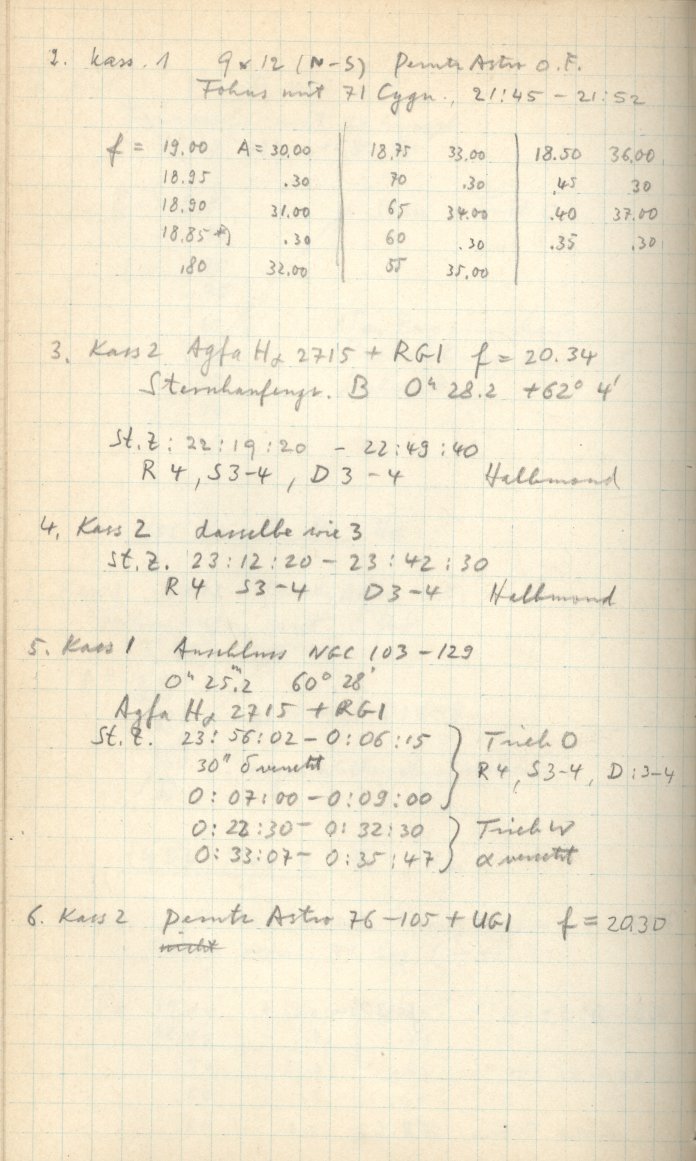 2. Kass. 1 9 x 12 (N-S) Perutz Astro O.F.
Fokus mit 71 Cygn., 21:45 - 21:52
f = 19.00 A = 30.00 18.75 33.00 18.50 36.00
18.95 .30 70 .30 .45 30
18.90 31.00 65 34.00 .40 37.00
18.85 *) .30 60 .30 .35 .30
.80 32.00 55 35.00
3. Kass 2 Agfa Hα 2715 + RG1 f = 20.34
Sternhaufengr. B 0h 28.2 +62° 4'
St.Z: 22:19:20 - 22:49:40
R 4, S 3-4, D 3-4 Halbmond
4. Kass 2 dasselbe wie 3
St.Z. 23:12:20 - 23:42:30
R 4 S 3-4 D 3-4 Halbmond
5. Kass 1 Anschluss NGC 103-129
0h 25m.2 60° 28'
Agfa Hα 2715 + RG1
St.Z. 23:56:02 - 0:06:15 } Trieb O
30" δ versetzt R 4, S 3-4, D:3-4
0:07:00 - 0:09:00
0:22:30 - 0:32:30 } Trieb W
0:33:07 - 0:35:47 α versetzt
6. Kass 2 Perutz Astro 76-105 + UG1 f = 20.30
nicht